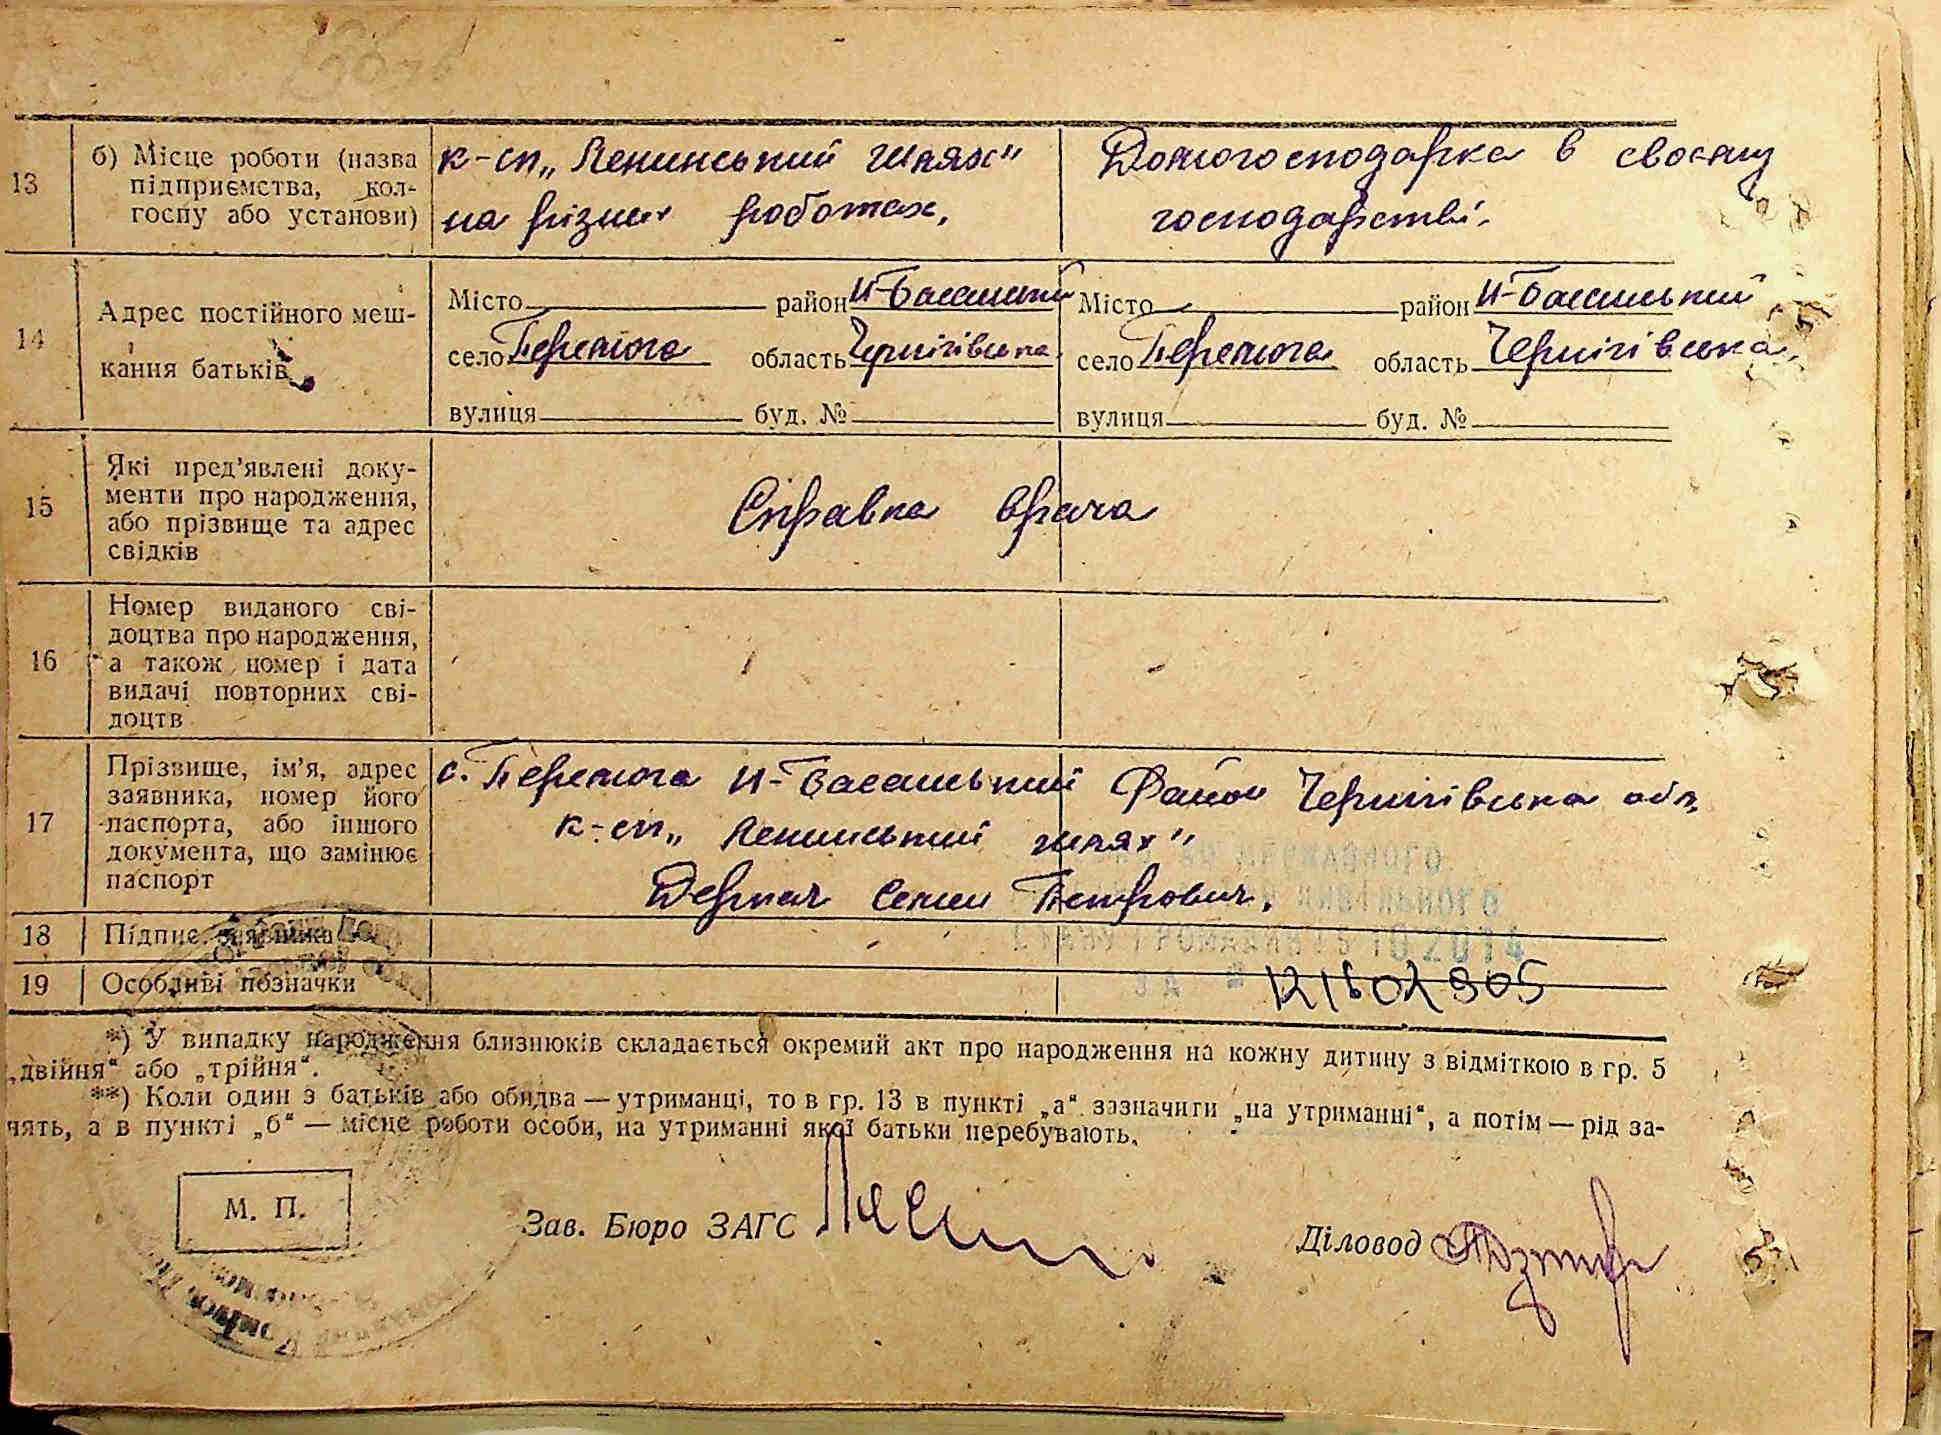 13
б) Місце роботи (назва
підприємства, кол-
госпу або установи)
к-сп „Ленинський шлях"
на різних роботах.
Домогосподарка в своєму
господарстві.
14
Адрес постійного меш-
кання батьків
Місто район Н-Басанський
село Перемога область Чернігівська
вулиця буд. №
Місто район Н-Басанський
село Перемога область Чернігівська
вулиця буд. №
15
Які пред'явлені доку-
менти про народження,
або прізвище та адрес
свідків
Справка врача
16
Номер виданого сві-
доцтва про народження,
а також номер і дата
видачі повторних сві-
доцтв
17
Прізвище, ім'я, адрес
заявника, номер його
паспорта, або іншого
документа, що замінює
паспорт
с. Перемога Н-Басанський район Чернігівська обл.
к-сп „Ленинський шлях"
Дермач Семен Петрович.
18 Підпис заявника
19 Особливі позначки
ДЕРЖАВНОГО
ЦИВІЛЬНОГО
СТАНУ ГРОМАДЯН 15 10 2014
ЗА № 121602905
*) У випадку народження близнюків складається окремий акт про народження на кожну дитину з відміткою в гр. 5
„двійня“ або „трійня“.
**) Коли один з батьків або обидва — утриманці, то в гр. 13 в пункті „а“ зазначити „на утриманні“, а потім — рід за-
нять, а в пункті „б“ — місце роботи особи, на утриманні якої батьки перебувають.
М. П.
Зав. Бюро ЗАГС
Діловод